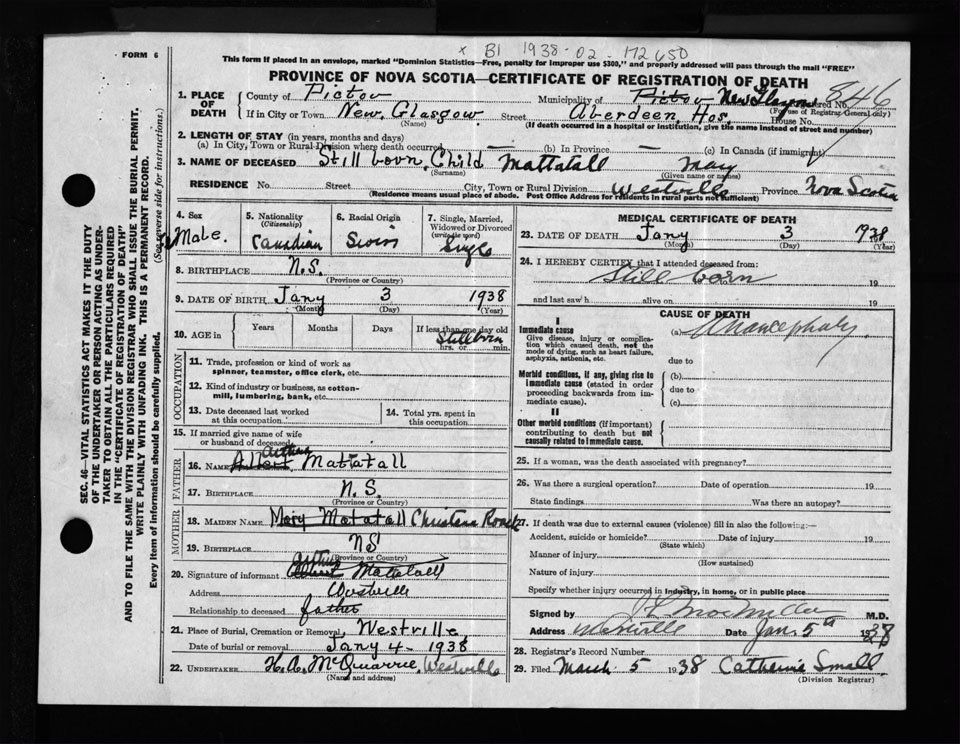 x B1 1938-02-172650
FORM 6
This form if placed in an envelope, marked "Dominion Statistics—Free, penalty for improper use $300," and properly addressed will pass through the mail "FREE"
PROVINCE OF NOVA SCOTIA—CERTIFICATE OF REGISTRATION OF DEATH
846
SEC. 46—VITAL STATISTICS ACT MAKES IT THE DUTY
OF THE UNDERTAKER OR PERSON ACTING AS UNDER-
TAKER TO OBTAIN ALL THE PARTICULARS REQUIRED
IN THE "CERTIFICATE OF REGISTRATION OF DEATH"
AND TO FILE THE SAME WITH THE DIVISION REGISTRAR WHO SHALL ISSUE THE BURIAL PERMIT.
WRITE PLAINLY WITH UNFADING INK. THIS IS A PERMANENT RECORD.
Every item of information should be carefully supplied. (See reverse side for instructions.)
1. PLACE OF DEATH County of Pictou Municipality of Pictou New Glasgow Registered No.
(For use of Registrar-General only)
If in City or Town New Glasgow Street Aberdeen Hos. House No.
(Name) (If death occurred in a hospital or institution, give the name instead of street and number)
2. LENGTH OF STAY (in years, months and days)
(a) In City, Town or Rural Division where death occurred — (b) In Province — (c) In Canada (if immigrant)
3. NAME OF DECEASED Still born Child Mattatall Mary
(Surname) (Given name or names)
RESIDENCE No. Street City, Town or Rural Division Westville Province Nova Scotia
(Residence means usual place of abode. Post Office Address for residents in rural parts not sufficient)
4. Sex Male
5. Nationality (Citizenship) Canadian
6. Racial Origin Swiss
7. Single, Married, Widowed or Divorced (write the word) Single
8. BIRTHPLACE N.S.
(Province or Country)
9. DATE OF BIRTH Jany 3 1938
(Month) (Day) (Year)
10. AGE in Years Months Days If less than one day old
Stillborn hrs. or min.
OCCUPATION
11. Trade, profession or kind of work as spinner, teamster, office clerk, etc.
12. Kind of industry or business, as cotton-mill, lumbering, bank, etc.
13. Date deceased last worked at this occupation
14. Total yrs. spent in this occupation
15. If married give name of wife or husband of deceased
FATHER
16. Name Albert Arthur Mattatall
17. Birthplace N.S.
(Province or Country)
MOTHER
18. Maiden Name Mary Matatall Christena
19. Birthplace NS
(Province or Country)
20. Signature of informant Albert Arthur Matatall
Address Westville
Relationship to deceased father
21. Place of Burial, Cremation or Removal Westville
Date of burial or removal Jany 4 - 1938
22. Undertaker H. A. McQuarrie Westville
(Name and address)
MEDICAL CERTIFICATE OF DEATH
23. DATE OF DEATH Jany 3 1938
(Month) (Day) (Year)
24. I HEREBY CERTIFY that I attended deceased from:
Still born 19
and last saw h alive on 19
CAUSE OF DEATH
I
Immediate cause
Give disease, injury or complication which caused death, not the mode of dying, such as heart failure, asphyxia, asthenia, etc.
(a)
due to
Morbid conditions, if any, giving rise to immediate cause (stated in order proceeding backwards from immediate cause).
(b)
due to
(c)
II
Other morbid conditions (if important) contributing to death but not causally related to immediate cause.
25. If a woman, was the death associated with pregnancy?
26. Was there a surgical operation? Date of operation 19
State findings Was there an autopsy?
27. If death was due to external causes (violence) fill in also the following:—
Accident, suicide or homicide? Date of injury 19
(State which)
Manner of injury
(How sustained)
Nature of injury
Specify whether injury occurred in industry, in home, or in public place
Signed by MacMillan M.D.
Address Westville Date Jan. 5th 1938
28. Registrar's Record Number
29. Filed March 5 1938 Catherine Small
(Division Registrar)